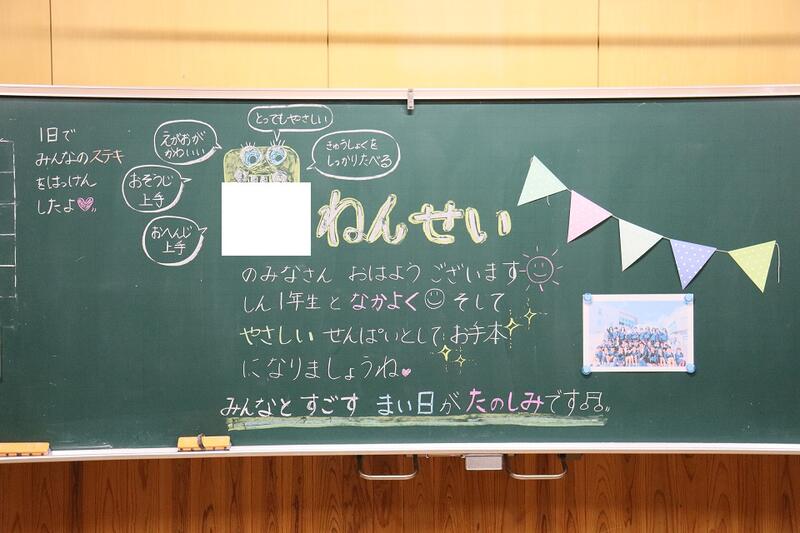 1日で
みんなのステキ
をはっけん
したよ
えがおが
かわいい
とってもやさしい
きゅうしょくを
しっかりたべる
おそうじ
上手
おへんじ
上手
ねんせい
のみなさん おはようございます
しん1年生となかよく そして
やさしい せんぱいとして お手本
になりましょうね
みんなと すごす まい日が たのしみです